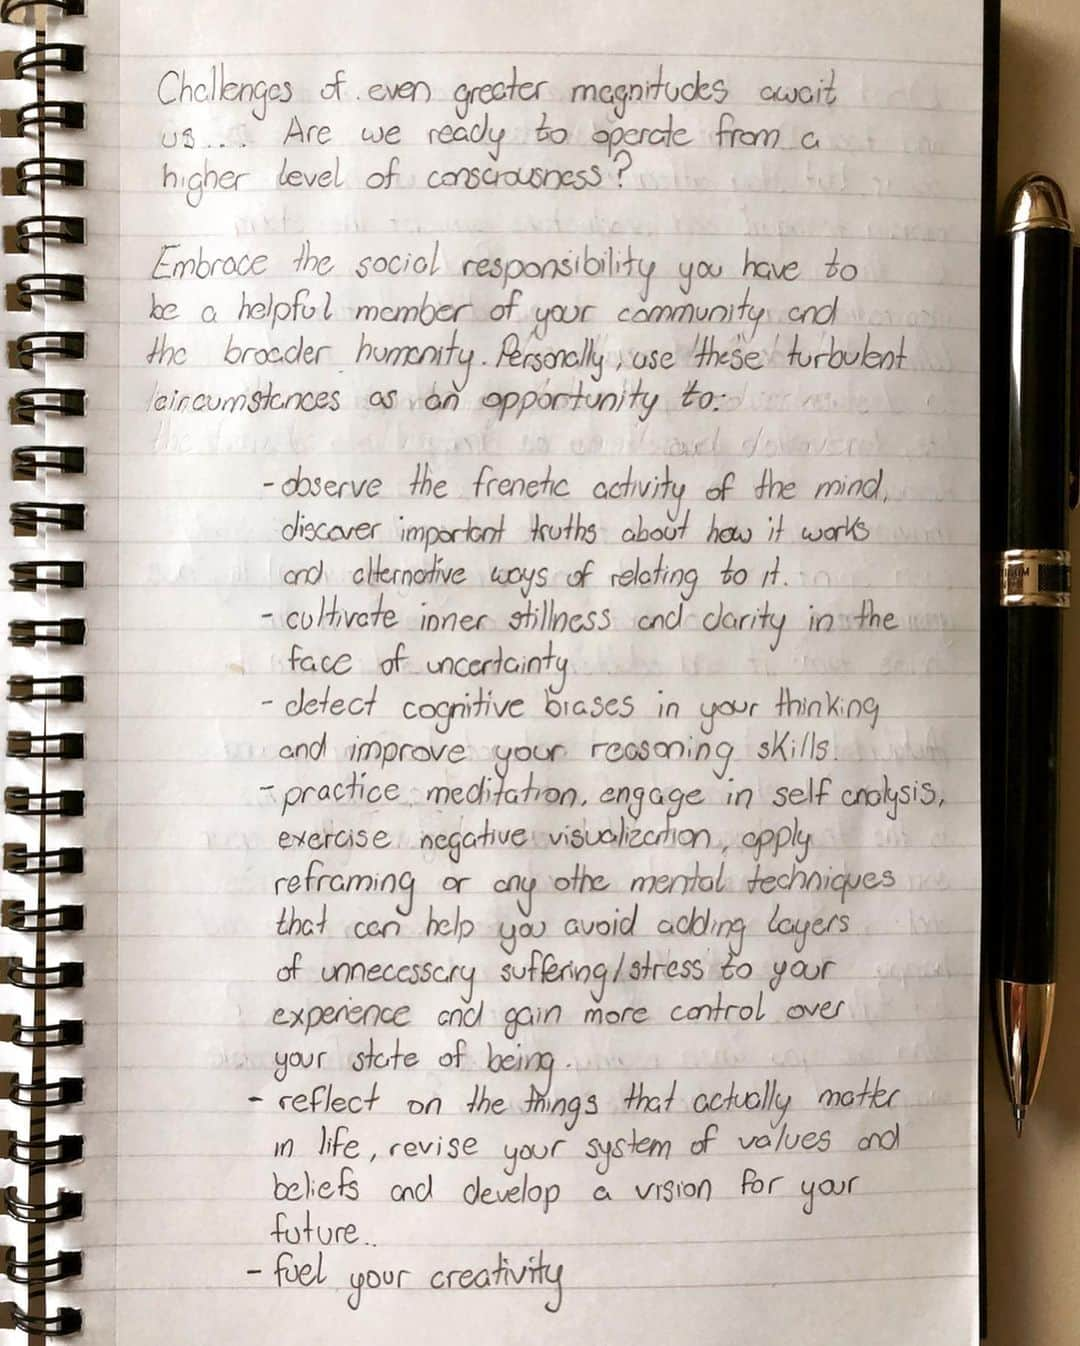 Challenges of even greater magnitudes await
us... Are we ready to operate from a
higher level of consciousness?
Embrace the social responsibility you have to
be a helpful member of your community and
the broader humanity. Personally, use these turbulent
circumstances as an opportunity to:
- observe the frenetic activity of the mind,
discover important truths about how it works
and alternative ways of relating to it.
- cultivate inner stillness and clarity in the
face of uncertainty
- detect cognitive biases in your thinking
and improve your reasoning skills.
- practice meditation, engage in self analysis,
exercise negative visualization, apply
reframing or any othe mental techniques
that can help you avoid adding layers
of unnecessary suffering/stress to your
experience and gain more control over
your state of being.
- reflect on the things that actually matter
in life, revise your system of values and
beliefs and develop a vision for your
future..
- fuel your creativity